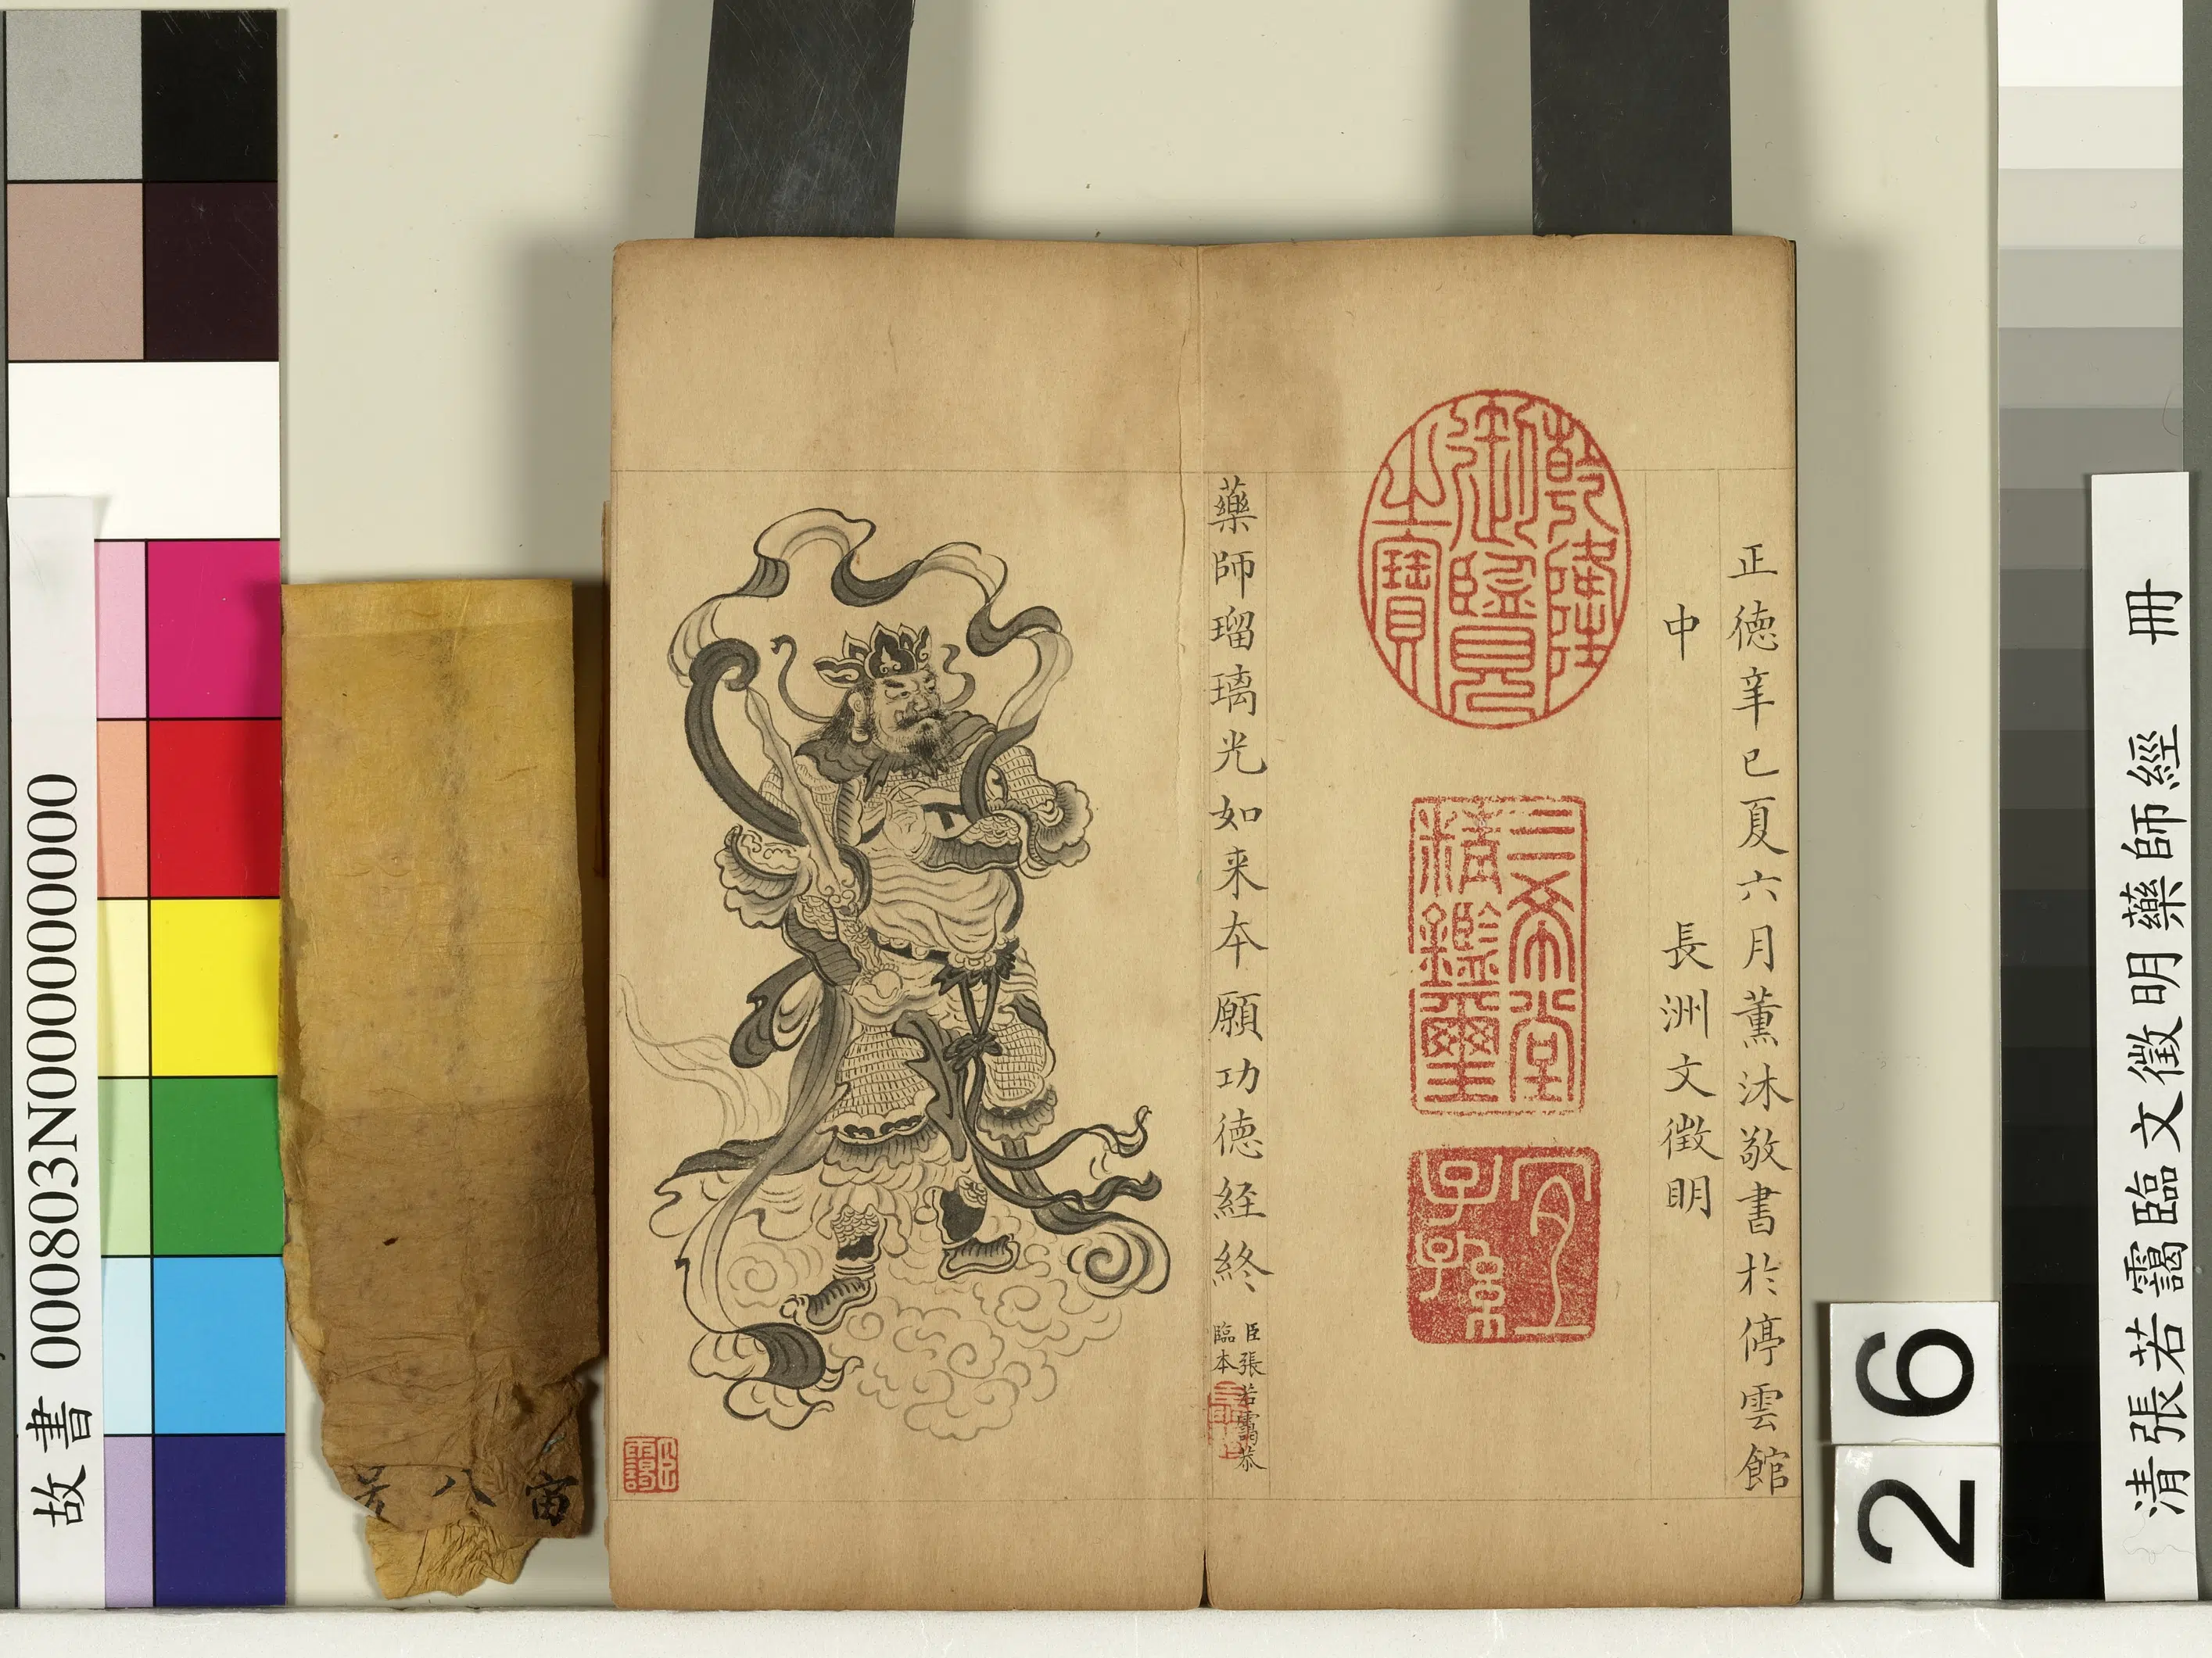 正徳辛巳夏六月薰沐敬書於停雲館
中　長洲文徵明
乾隆御覽之寶
三希堂精鑑璽
宜子孫
藥師瑠璃光如来本願功德経終
臣張若靄恭
臨本
清張若靄臨文徵明藥師經　冊
故書 000803N000000000
26